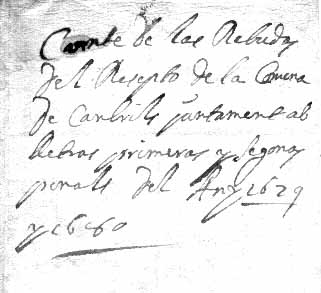 Comte de las Rebudas
del Resepto de la Comuna
de Cambrils juntament ab
lletras primeras y segonas
penals del Any 1629
y 1630